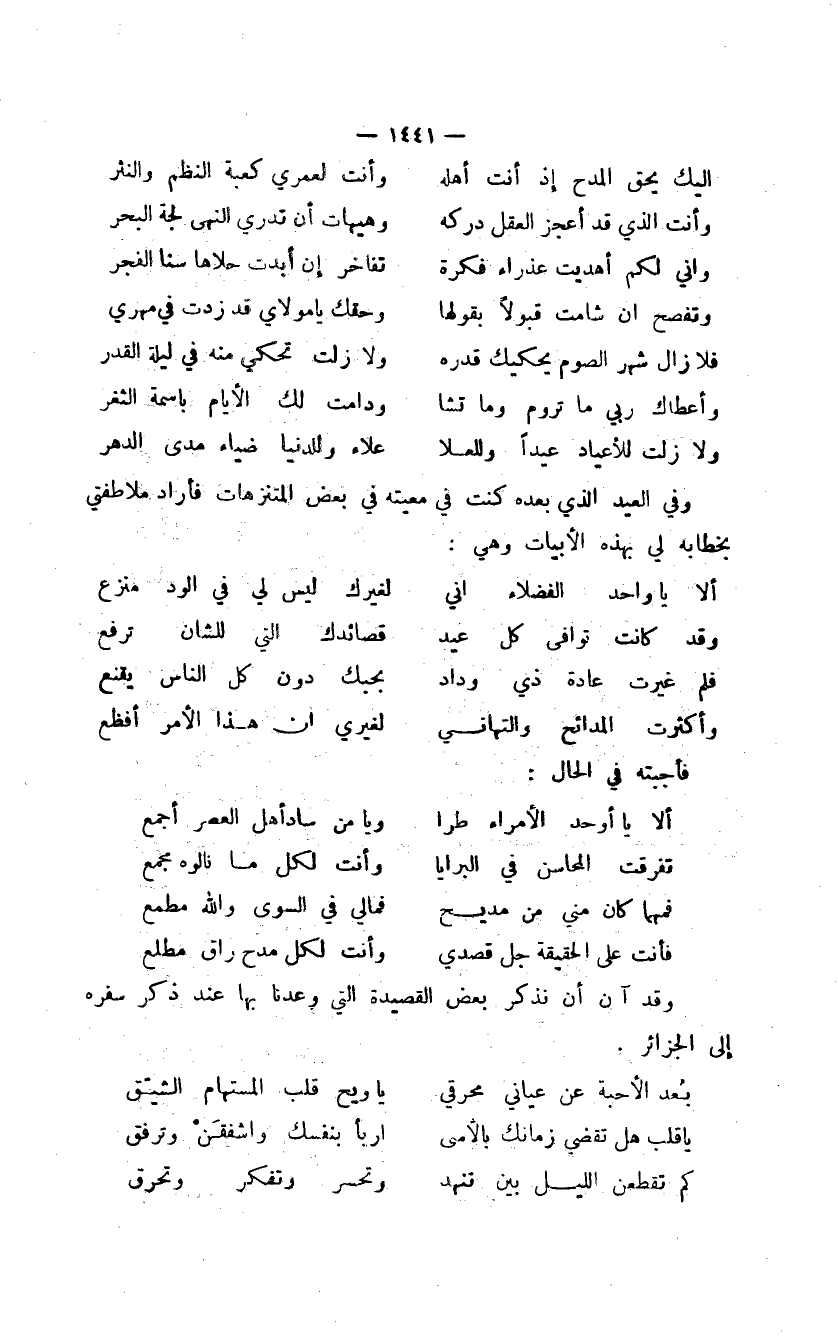 — ١٤٤١ —
اليك يحق المدح إذ أنت أهله وأنت لعمري كعبة النظم والنثر
وأنت الذي قد أعجز العقل دركه وهيهات أن تدري النهى لجة البحر
واني لكم أهديت عذراء فكرة تفاخر إن أبدت حلاها سنا الفجر
وتفصح ان شامت قبولاً بقولها وحقك يامولاي قد زدت في مهري
فلا زال شهر الصوم يحكيك قدره ولا زلت تحكي منه في ليلة القدر
وأعطاك ربي ما تروم وما تشا ودامت لك الأيام باسمة الثغر
ولا زلت للأعياد عيداً وللعـلا علاء وللدنيا ضياء مدى الدهر
وفي العيد الذي بعده كنت في معيته في بعض المتنزهات فأراد ملاطفتي
بخطابه لي بهذه الأبيات وهي :
ألا ياواحد الفضلاء اني لغيرك ليس لي في الود منزع
وقد كانت توافى كل عيد قصائدك التي للشان ترفع
فلم غيرت عادة ذي وداد بحبك دون كل الناس يقنع
وأكثرت المدائح والتهانـي لغيري ان هـذا الأمر أفظع
فأجبته في الحال :
ألا ياأوحد الأمراء طرا ويامن سادأهل العصر أجمع
تفرقت المحاسن في البرايا وأنت لكل مـا نالوه مجمع
فمهما كان مني من مديـح فمالي في السوى والله مطمع
فأنت على الحقيقة جل قصدي وأنت لكل مدح راق مطلع
وقد آن أن نذكر بعض القصيدة التي وعدنا بها عند ذكر سفره
إلى الجزائر .
بُعد الأحبة عن عياني محرقي ياويح قلب المستهام الشيّق
ياقلب هل تقضي زمانك بالأسى اربأ بنفسك واشفقَنْ وترفق
كم تقطعن الليـل بين تنهد وتحسر وتفكر وتحرق